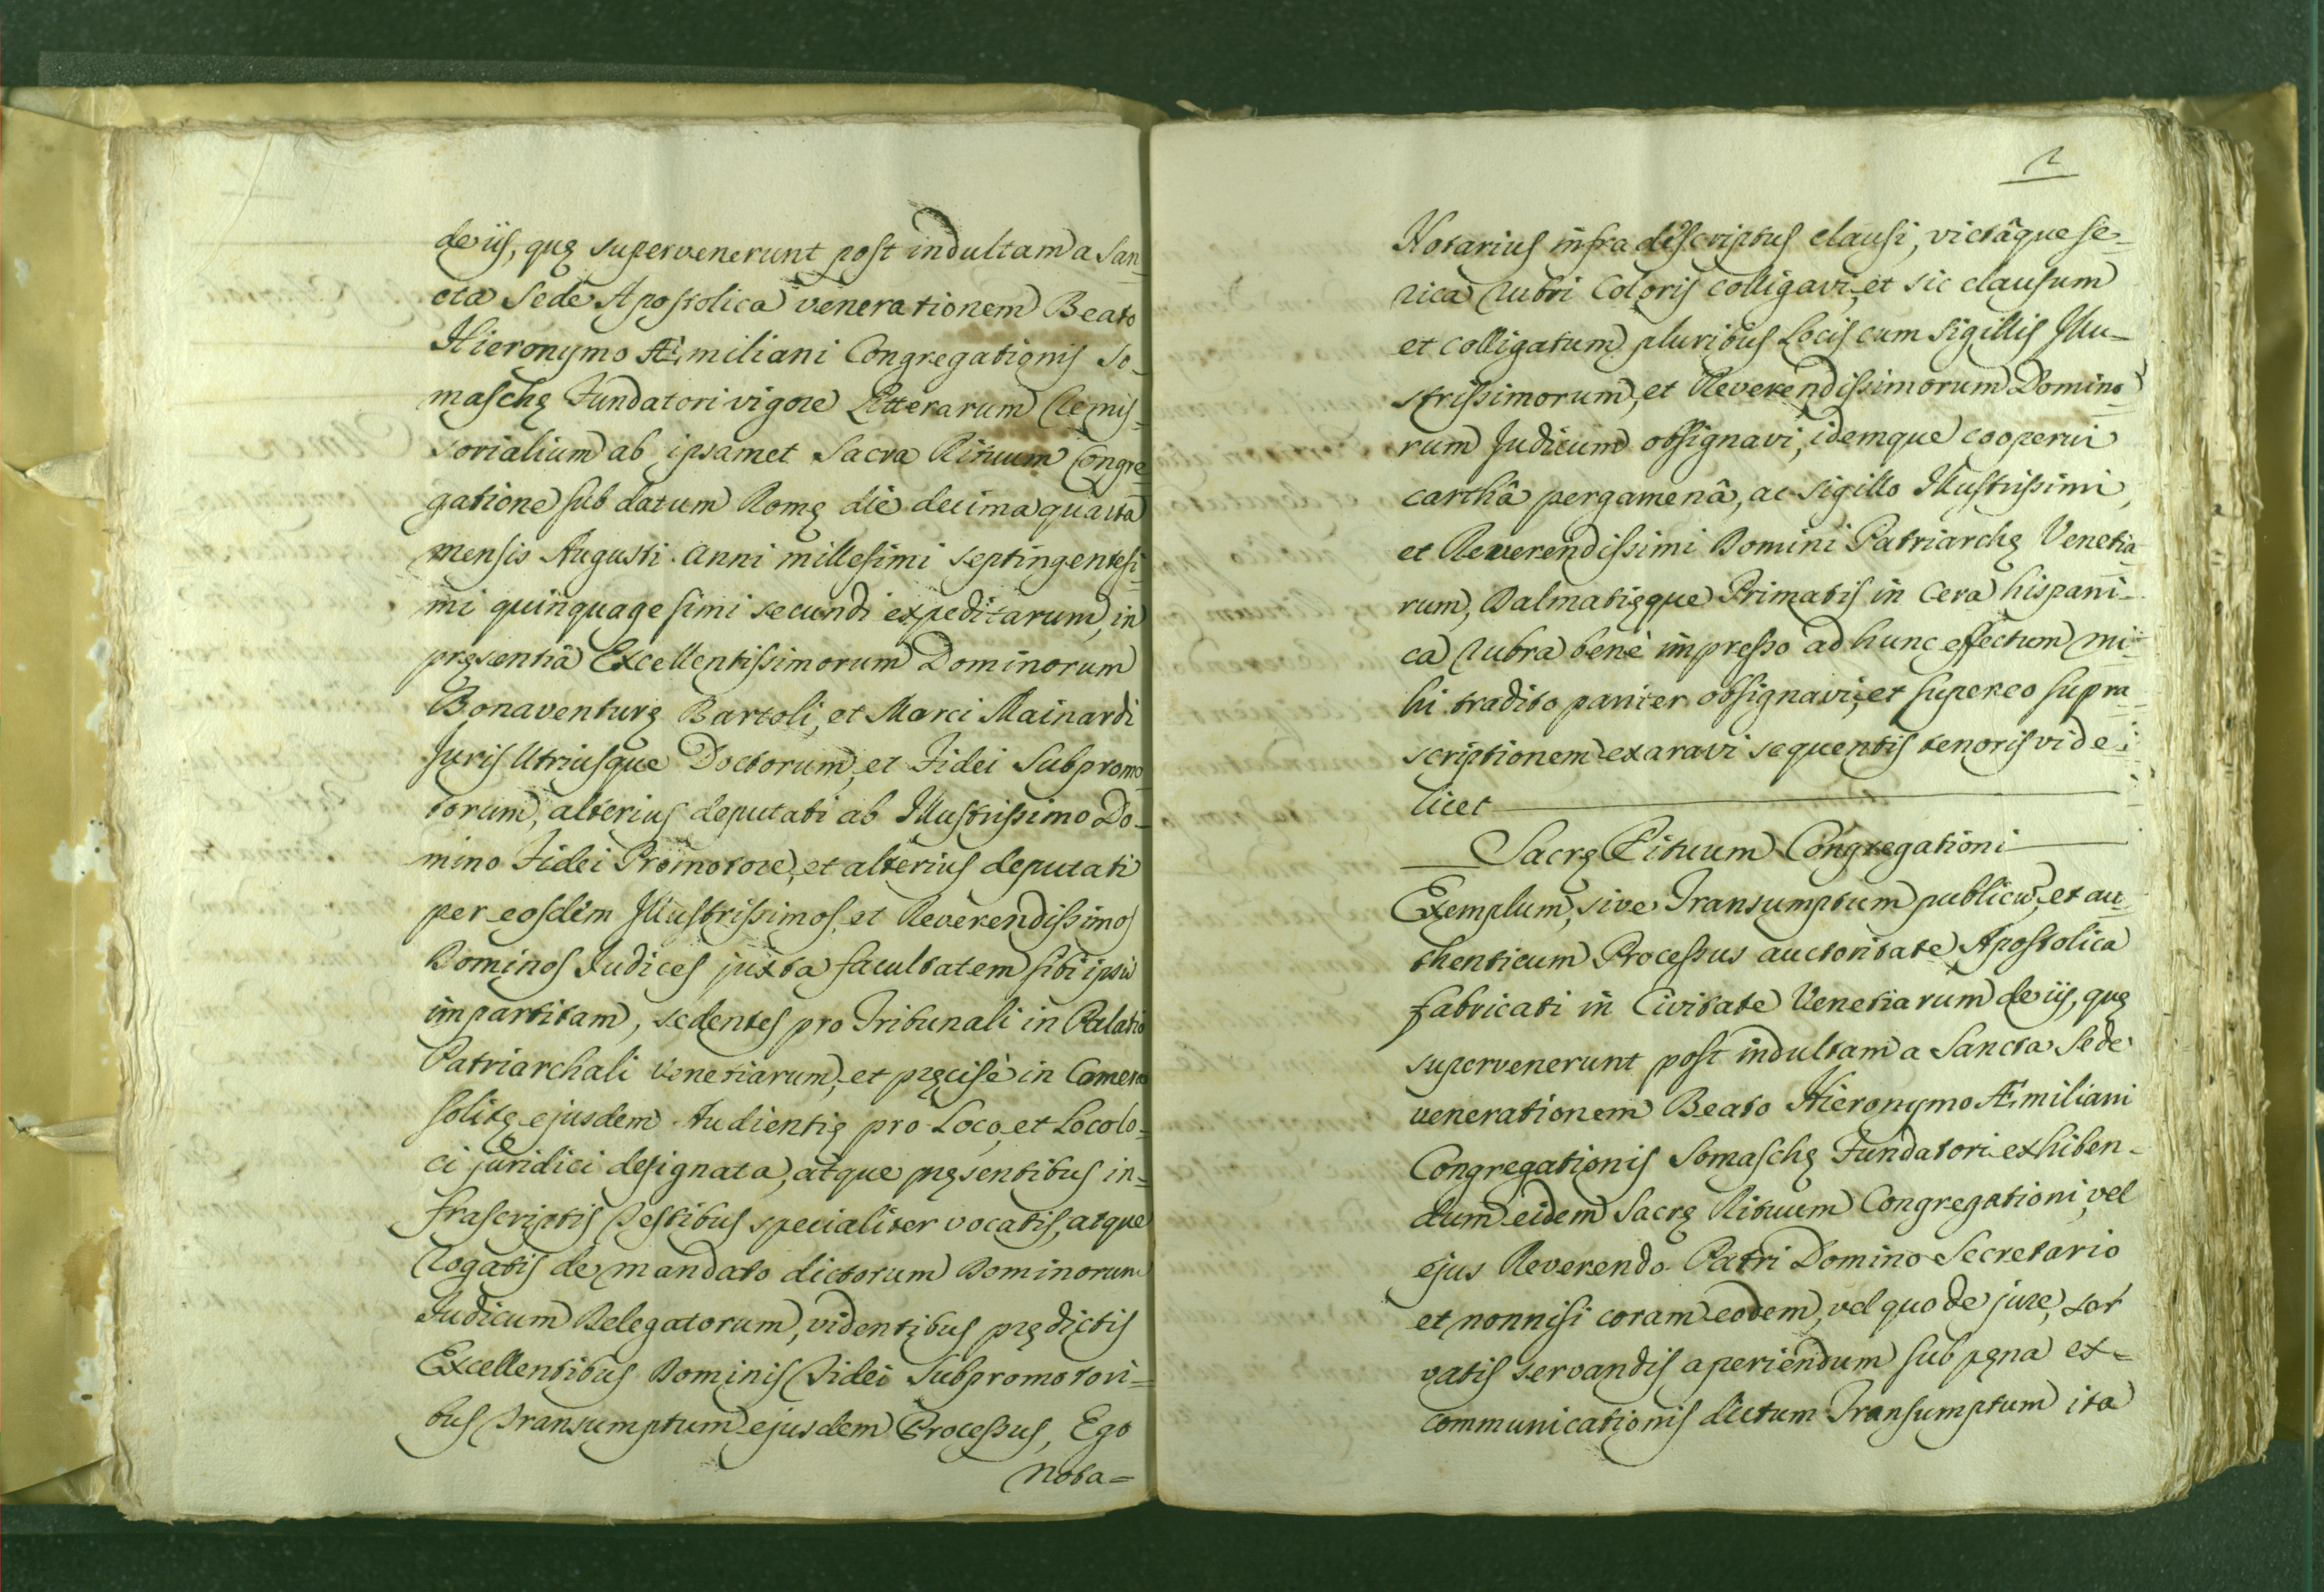 de iis, quę supervenerunt post indultam a San-
cta Sede Apostolica venerationem Beato
Hieronymo Æmiliani Congregationis So-
maschę Fundatori vigore Litterarum Remis-
sorialium ab ipsamet Sacra Rituum Congre-
gatione sub datum Romę die decima quarta
mensis Augusti anni millesimi septingentesi-
mi quinquagesimi secundi expeditarum, in
pręsentiâ Excellentissimorum Dominorum
Bonaventurę Bartoli, et Marci Mainardi
Juris Utriusque Doctorum, et Fidei Subpromo-
torum, alterius deputati ab Illustrissimo Do-
mino Fidei Promotore, et alterius deputati
per eosdem Illustrissimos, et Reverendissimos
Dominos Judices juxta facultatem sibi ipsis
impartitam, sedentes pro Tribunali in Palatio
Patriarchali Venetiarum, et pręcisè in Camera
solitę ejusdem Audientię pro Loco, et Loco lo-
ci juridici designata, atque pręsentibus in-
frascriptis Testibus specialiter vocatis, atque
Rogatis de mandato dictorum Dominorum
Judicum Delegatorum, videntibus prędictis
Excellentibus Dominis Fidei Subpromotori-
bus Transumptum ejusdem Processus, Ego
Nota=
2
Notarius infradiscriptus clausi, victâque se-
rica Rubri Coloris colligavi, et sic clausum
et colligatum pluribus Locis cum sigillis Illu-
strissimorum, et Reverendissimorum Domino-
rum Judicum obsignavi, idemque cooperui
carthâ pergamenâ, ac sigillo Illustrissimi,
et Reverendissimi Domini Patriarchę Venetia-
rum, Dalmatięque Primatis in Cera hispani-
ca Rubra benè impresso ad hunc effectum mi-
hi tradito pariter obsignavi, et super eo supra-
scriptionem exaravi sequentis tenoris vide-
licet
Sacrę Rituum Congregationi
Exemplum, sive Transumptum publicũ, et au-
thenticum Processus auctoritate Apostolica
fabricati in Civitate Venetiarum de iis, quę
supervenerunt post indultam a Sancta Sede
venerationem Beato Hieronymo Æmiliani
Congregationis Somaschę Fundatori exhiben-
dum eidem Sacrę Rituum Congregationi, vel
ejus Reverendo Patri Domino Secretario
et nonnisi coram eodem, vel quo de jure, ser
vatis servandis aperiendum sub pęna ex-
communicationis dictum Transumptum ita